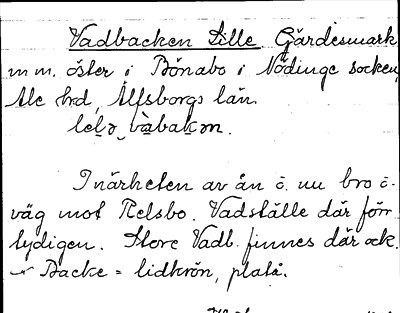 Vadbacken Lille. Gärdesmark
m m. öster i Bönabo i Nödinge socken,
Ale hd, Älfsborgs län.
I närheten av ån o. nu bro o.
väg mot Relsbo. Vadställe där förr
tydigen. Store Vadb. finnes där ock.
Backe = lidkrön, platå.